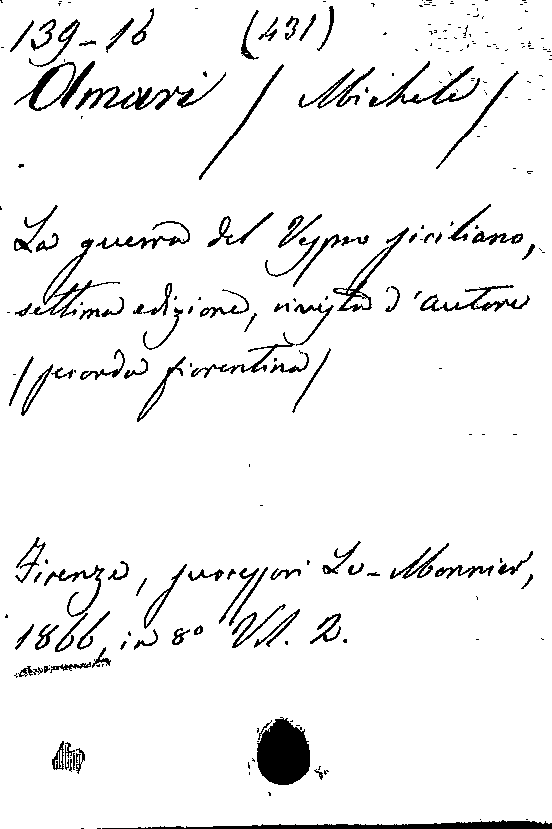 139-16 (431)
Amari / Michele /
La guerra del Vespro siciliano,
settima edizione, rivista d'autore
/ seconda fiorentina /
Firenze, successori Le-Monnier,
1866, in 8° Vol. 2.